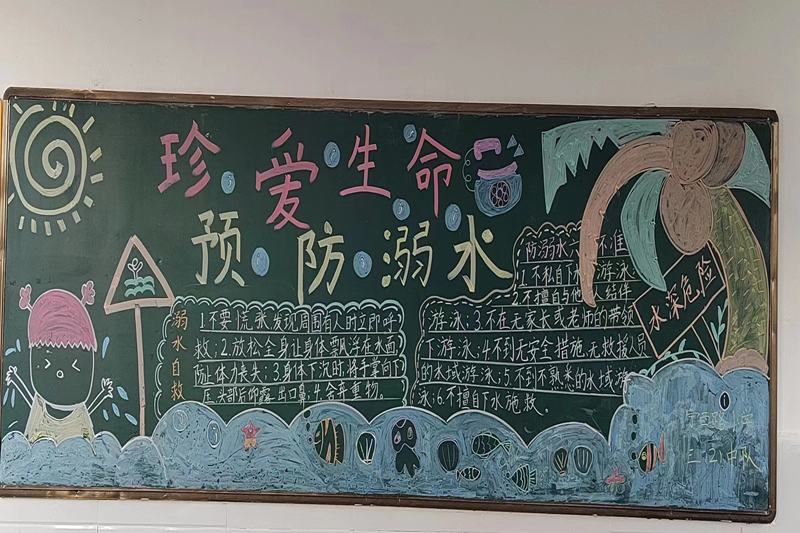 珍爱生命
预防溺水
溺水自救
1.不要慌张发现周围有人时立即呼
救;2.放松全身让身体飘浮在水面
防止体力丧失;3.身体下沉时将手掌向下
压头部后仰露出口鼻;4.舍弃重物。
防溺水六不准
1.不私自下水游泳;
2.不擅自与他人结伴
游泳;3.不在无家长或老师的带领
下游泳;4.不到无安全措施,无救援人员
的水域游泳;5.不到不熟悉的水域游
泳;6.不擅自下水施救。
水深危险
三(2)中队